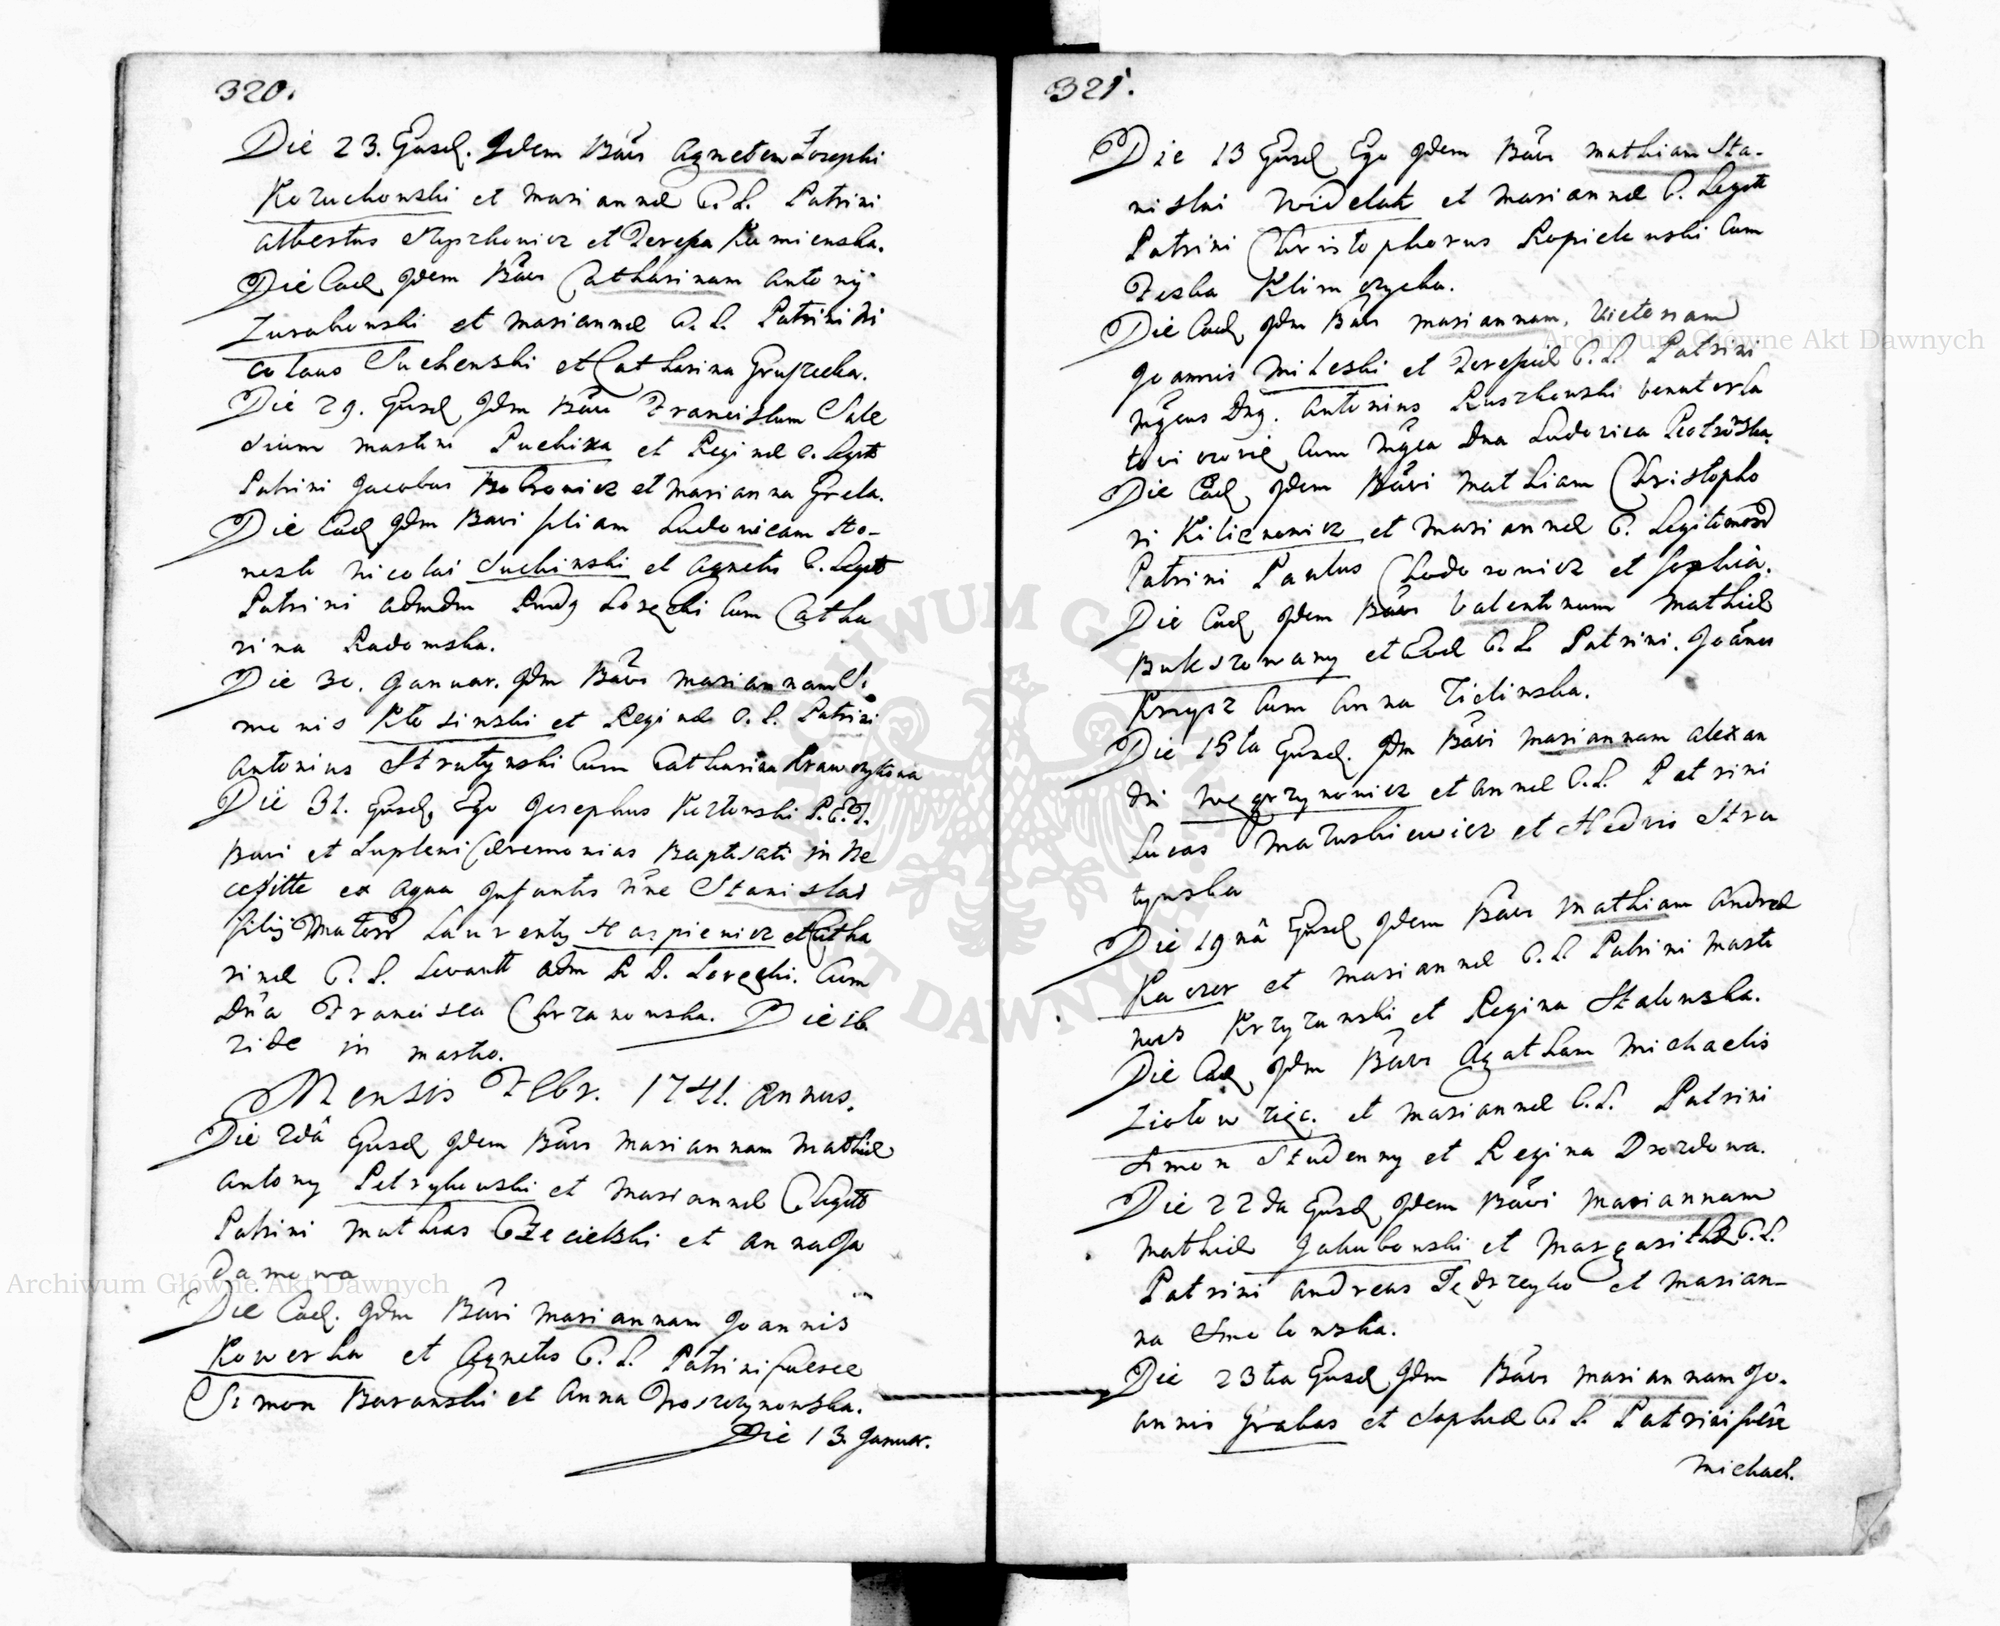 320.
Die 23. Ejusd. Idem Bavi Agnetem Josephi
Kozuchowski et Mariannae C. L. Patrini
Albertus et Teresa Kamienska.
Die Ead Idem Bavi Catharinam Antonij
Zurakowski et Mariannae C. L. Patrini Ni
colaus Suchenski et Catharina Gruszecka.
Die 29. Ejusd Idm Bavi Franciscum Sale
sium Martini Puchixa et Reginae C. Legitt
Patrini Jacobus Bobrowicz et Marianna Grela.
Die Ead Idm Bavi filiam Ludovicam Ho-
nesti Nicolai Suchinski et Agnetis C. Legitt
Patrini Admdm Rndg Lozecki Cum Catha
rina Radomska.
Die 30. Januar. Idm Bavi Mariannam Si
meonis Klosinski et Reginae C. L. Patrini
Antonius Strutynski Cum Catharina Krawczykowa
Die 31. Ejusd Ego Josephus Kozlowski
Bavi et Suplevi Caeremonias Baptisati in Ne
cessitte ex Aqua Infantis nine Stanislai
filij Laurenty Haspiewicz et Catha
rinae C. L. Levantt adm R. D. Lozecki. Cum
Dna Francisca Chrzanowska. Die 16
vide in Martio.
Mensis Febr. 1741. Annus.
Die 2da Ejusd Idem Bavi Mariannam Mathiae
Antony Petrykowski et Mariannae C Legitt
Patrini Mathias et Anna Ja
damowa
Die Ead. Idm Bavi Mariannam Joannis
Kowerka et Agnetis C. L. Patrini fuere
Simon Baranski et Anna Woszczynowska.
Die 13. Januar.
321.
Die 13 Ejusd Ego Idem Bavi Mathiam Sta-
nislai Widelak et Mariannae C. Legitt
Patrini Christophorus Kopidenski Cum
Zeska Klimczycka.
Die Ead Idm Bavi Mariannam, Victoriam
Joannis Mileski et Teresiae C. L. Patrini
Mgcus Dng. Antonius Ruszkowski Venator La
toviczovie Cum Mgca Dna Ludovica Piotrowska
Die Ead Idem Bavi Mathiam Christopho
ri Kilianowicz et Mariannae C. Legitimor
Patrini Paulus Chodorowicz et Sophia.
Die Ead Idem Bavi Valentinum Mathiae
Bukszowany et Evae C. L. Patrini. Joanes
Krzysz Cum Anna Zielinska.
Die 15ta Ejusd. Idm Bavi Mariannam Alexan
dri Wegrzynowicz et Annae C. L. Patrini
Lucas Matuskiewicz et Hedvis Stru
tynska
Die 19na Ejusd Idem Bavi Mathiam Andreae
Kaczor et Mariannae C. L. Patrini Marti
nus Krzyzanski et Regina Stalenska.
Die Ead Idm Bavi Agatham Michaelis
Ziolow et Mariannae C. L. Patrini
Simon Studenny et Regina Drozdowa.
Die 22da Ejusd Idem Bavi Mariannam
Mathiae Jakubowski et Margarithae C. L.
Patrini Andreas Jedrzeyko et Marian-
na Smolenska.
Die 23tia Ejusd Idm Bavi Mariannam Jo-
annis Grabas et Sophiae C. L. Patrini fuere
Michael.
Archiwum Główne Akt Dawnych
Archiwum Główne Akt Dawnych
ARCHIWUM GŁÓWNE AKT DAWNYCH